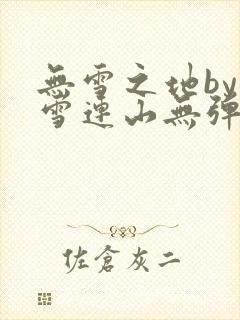 無雪之地by
雪連山無彈
佐倉灰二